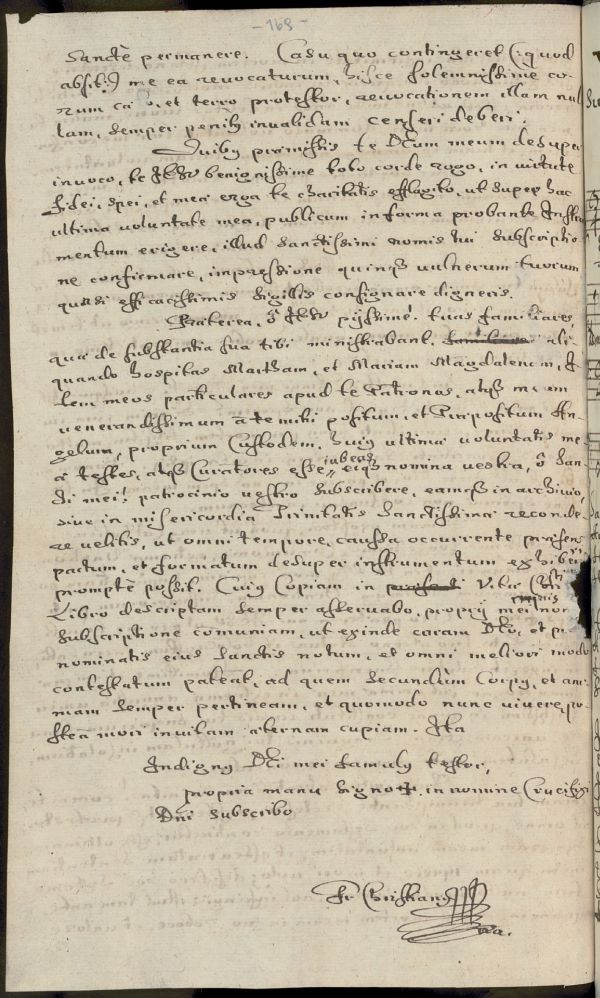 - 168 -
sanctè permanere. Casu quo contingeret (: quod
absit :) me ea revocaturum, hisce solemnissime co-
rum et terrâ protestor, revocationem illam nul
lam, semper penitus invalidam censeri deberi.
Quibus praemissis te Dnum meum desuper
invoco, te JESU benignissime toto corde rogo, in virtute
fidei, spei, et meae erga te charitatis efflagito, ut super hac
ultima voluntate mea, publicum in forma probante Instru
mentum erigere, illud sanctissimi nominis tui subscriptio
ne confirmare, impressione quinque vulnerum tuorum
quasi efficacissimis sigillis consignare digneris.
Praeterea, ô JESU pijssime! tuas familiares
quae de substantia sua tibi ministrabant, ali-
quando hospitas Martham, et Mariam Magdalenam, I-
tem meos particulares apud te Patronos, atque
venerandissimum à te mihi positum, et Praepositum An-
gelum, proprium Custodem, huius ultimae voluntatis me
ae testes, atque Curatores esse iubeas, eiusque nomina vestra, ô San
cti mei! patrocinio vestro subscribere, eamque in archivio,
sive in misericordia Trinitatis Sanctissimae reconde-
re velitis, ut omni tempore, caussa occurrente praesens
pactum, et formatum desuper instrumentum exhiberi
promptè possit. Cuius Copiam in Vitae
Libro descriptam semper asservabo, proprij mei nominis
subscriptione comuniam, ut exinde coram Deo, et prae
nominatis eius sanctis notum, et omni meliori modo
contestatum pateat, ad quem secundum Corpus, et ani-
mam semper pertineam, et quomodo nunc vivere, po-
steà mori in vitam aeternam cupiam. Ita
Indignus Dei mei famulus testor,
propria manu signo ✝. in nomine Crucifixi
Dni subscribo
Fr Christianus
mp.